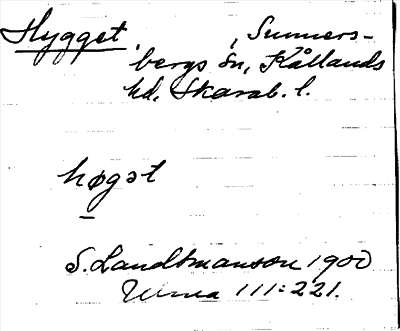 Hygget, , Sunners-
bergs sn, Kållands
hd, Skarab. l.
høgət
S. Landtmanson 1900
111:221.